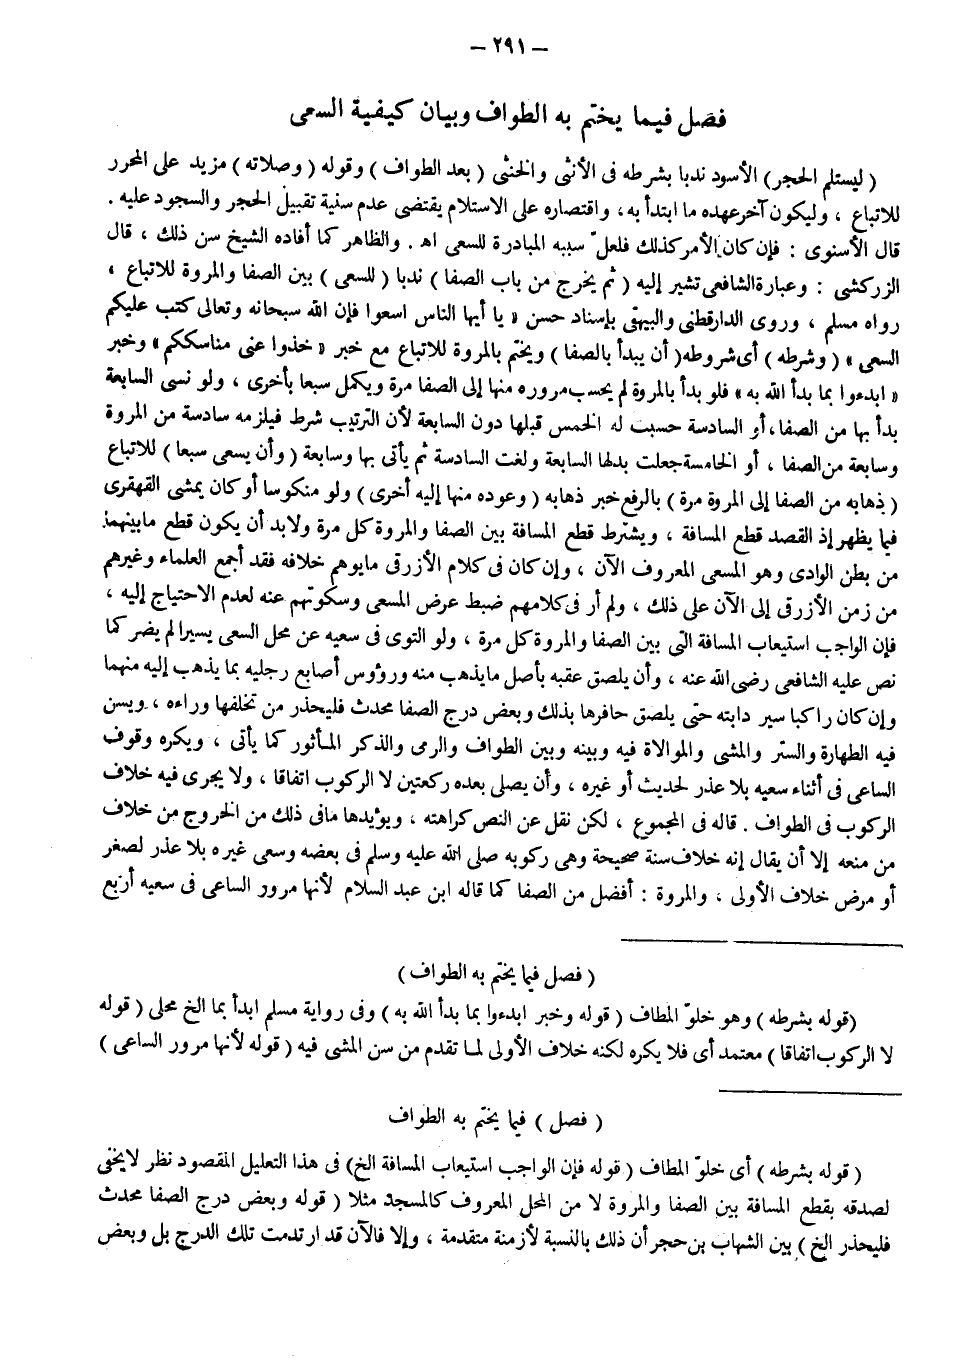 — ٢٩١ —
فصل فيما يختم به الطواف وبيان كيفية السعى
( ليستلم الحجر) الأسود ندبا بشرطه فى الأنثى والخنثى ( بعد الطواف ) وقوله ( وصلاته ) مزيد على المحرر
للاتباع ، وليكون آخر عهده ما ابتدأ به، واقتصاره على الاستلام يقتضى عدم سنية تقبيل الحجر والسجود عليه .
قال الأسنوى : فإن كان الأمر كذلك فلعلّ سببه المبادرة للسعى اه . والظاهر كما أفاده الشيخ سن ذلك ، قال
الزركشى : وعبارة الشافعى تشير إليه ( ثم يخرج من باب الصفا ) ندبا ( للسعى ) بين الصفا والمروة للاتباع ،
رواه مسلم ، وروى الدارقطنى والبيهقى بإسناد حسن « يا أيها الناس اسعوا فإن الله سبحانه وتعالى كتب عليكم
السعى » ( وشرطه ) أى شروطه ( أن يبدأ بالصفا ) ويختم بالمروة للاتباع مع خبر « خذوا عنى مناسككم » وخبر
« ابدءوا بما بدأ الله به » فلو بدأ بالمروة لم يحسب مروره منها إلى الصفا مرة ويكمل سبعا بأخرى ، ولو نسى السابعة
بدأ بها من الصفا، أو السادسة حسبت له الخمس قبلها دون السابعة لأن الترتيب شرط فيلزمه سادسة من المروة
وسابعة من الصفا ، أو الخامسة جعلت بدلها السابعة ولغت السادسة ثم يأتى بها وسابعة ( وأن يسعى سبعا ) للاتباع
( ذهابه من الصفا إلى المروة مرة ) بالرفع خبر ذهابه ( وعوده منها إليه أخرى ) ولو منكوسا أو كان يمشى القهقرى
فيما يظهر إذ القصد قطع المسافة ، ويشترط قطع المسافة بين الصفا والمروة كل مرة ولابد أن يكون قطع مابينهما
من بطن الوادى وهو المسعى المعروف الآن ، وإن كان فى كلام الأزرقى مايوهم خلافه فقد أجمع العلماء وغيرهم
من زمن الأزرقى إلى الآن على ذلك ، ولم أر فى كلامهم ضبط عرض المسعى وسكوتهم عنه لعدم الاحتياج إليه ،
فإن الواجب استيعاب المسافة التى بين الصفا والمروة كل مرة ، ولو التوى فى سعيه عن محل السعى يسيرا لم يضر كما
نص عليه الشافعى رضى الله عنه ، وأن يلصق عقبه بأصل مايذهب منه ورؤوس أصابع رجليه بما يذهب إليه منهما
وإن كان راكبا سير دابته حتى يلصق حافرها بذلك وبعض درج الصفا محدث فليحذر من تخلفها وراءه ، ويسن
فيه الطهارة والستر والمشى والموالاة فيه وبينه وبين الطواف والرمى والذكر المأثور كما يأتى ، ويكره وقوف
الساعى فى أثناء سعيه بلا عذر لحديث أو غيره ، وأن يصلى بعده ركعتين لا الركوب اتفاقا ، ولا يجرى فيه خلاف
الركوب فى الطواف . قاله فى المجموع ، لكن نقل عن النص كراهته ، ويؤيدها مافى ذلك من الخروج من خلاف
من منعه إلا أن يقال إنه خلاف سنة صحيحة وهى ركوبه صلى الله عليه وسلم فى بعضه وسعى غيره بلا عذر لصغر
أو مرض خلاف الأولى ، والمروة : أفضل من الصفا كما قاله ابن عبد السلام لأنها مرور الساعى فى سعيه أربع
( فصل فيما يختم به الطواف)
(قوله بشرطه ) وهو خلوّ المطاف ( قوله وخبر ابدءوا بما بدأ الله به ) وفى رواية مسلم ابدأ بما الخ محلى ( قوله
لا الركوب اتفاقا ) معتمد أى فلا يكره لكنه خلاف الأولى لما تقدم من سن المشى فيه ( قوله لأنها مرور الساعى )
( فصل ) فيما يختم به الطواف
( قوله بشرطه ) أى خلوّ المطاف ( قوله فإن الواجب استيعاب المسافة الخ) فى هذا التعليل المقصود نظر لايخفى
لصدقه بقطع المسافة بين الصفا والمروة لا من المحل المعروف كالمسجد مثلا ( قوله وبعض درج الصفا محدث
فليحذر الخ ) بين الشهاب بن حجر أن ذلك بالنسبة لأزمنة متقدمة ، وإلا فالآن قد ارتدمت تلك الدرج بل وبعض